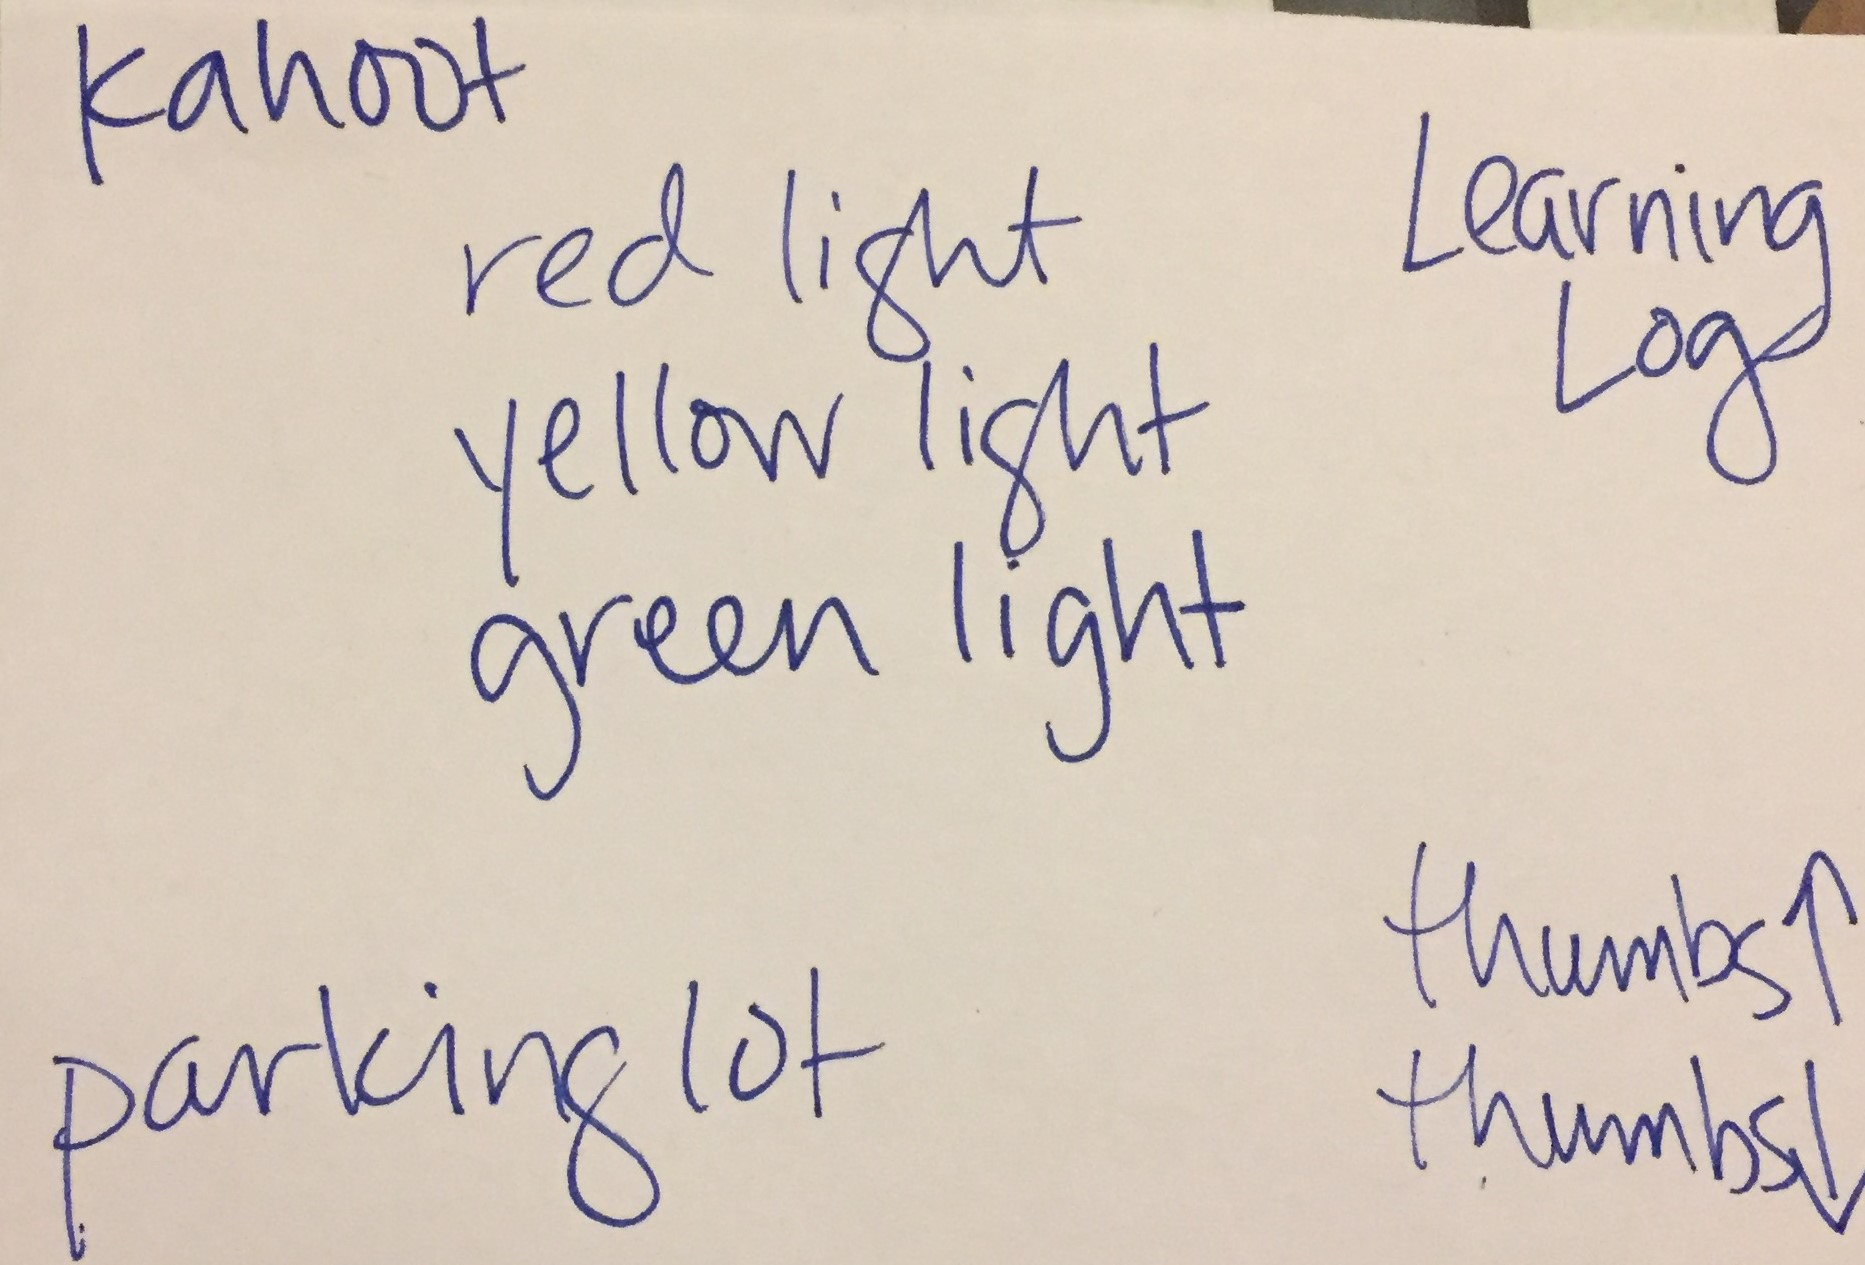 kahoot
red light
yellow light
green light
Learning
Log
parking lot
thumbs↑
thumbs↓